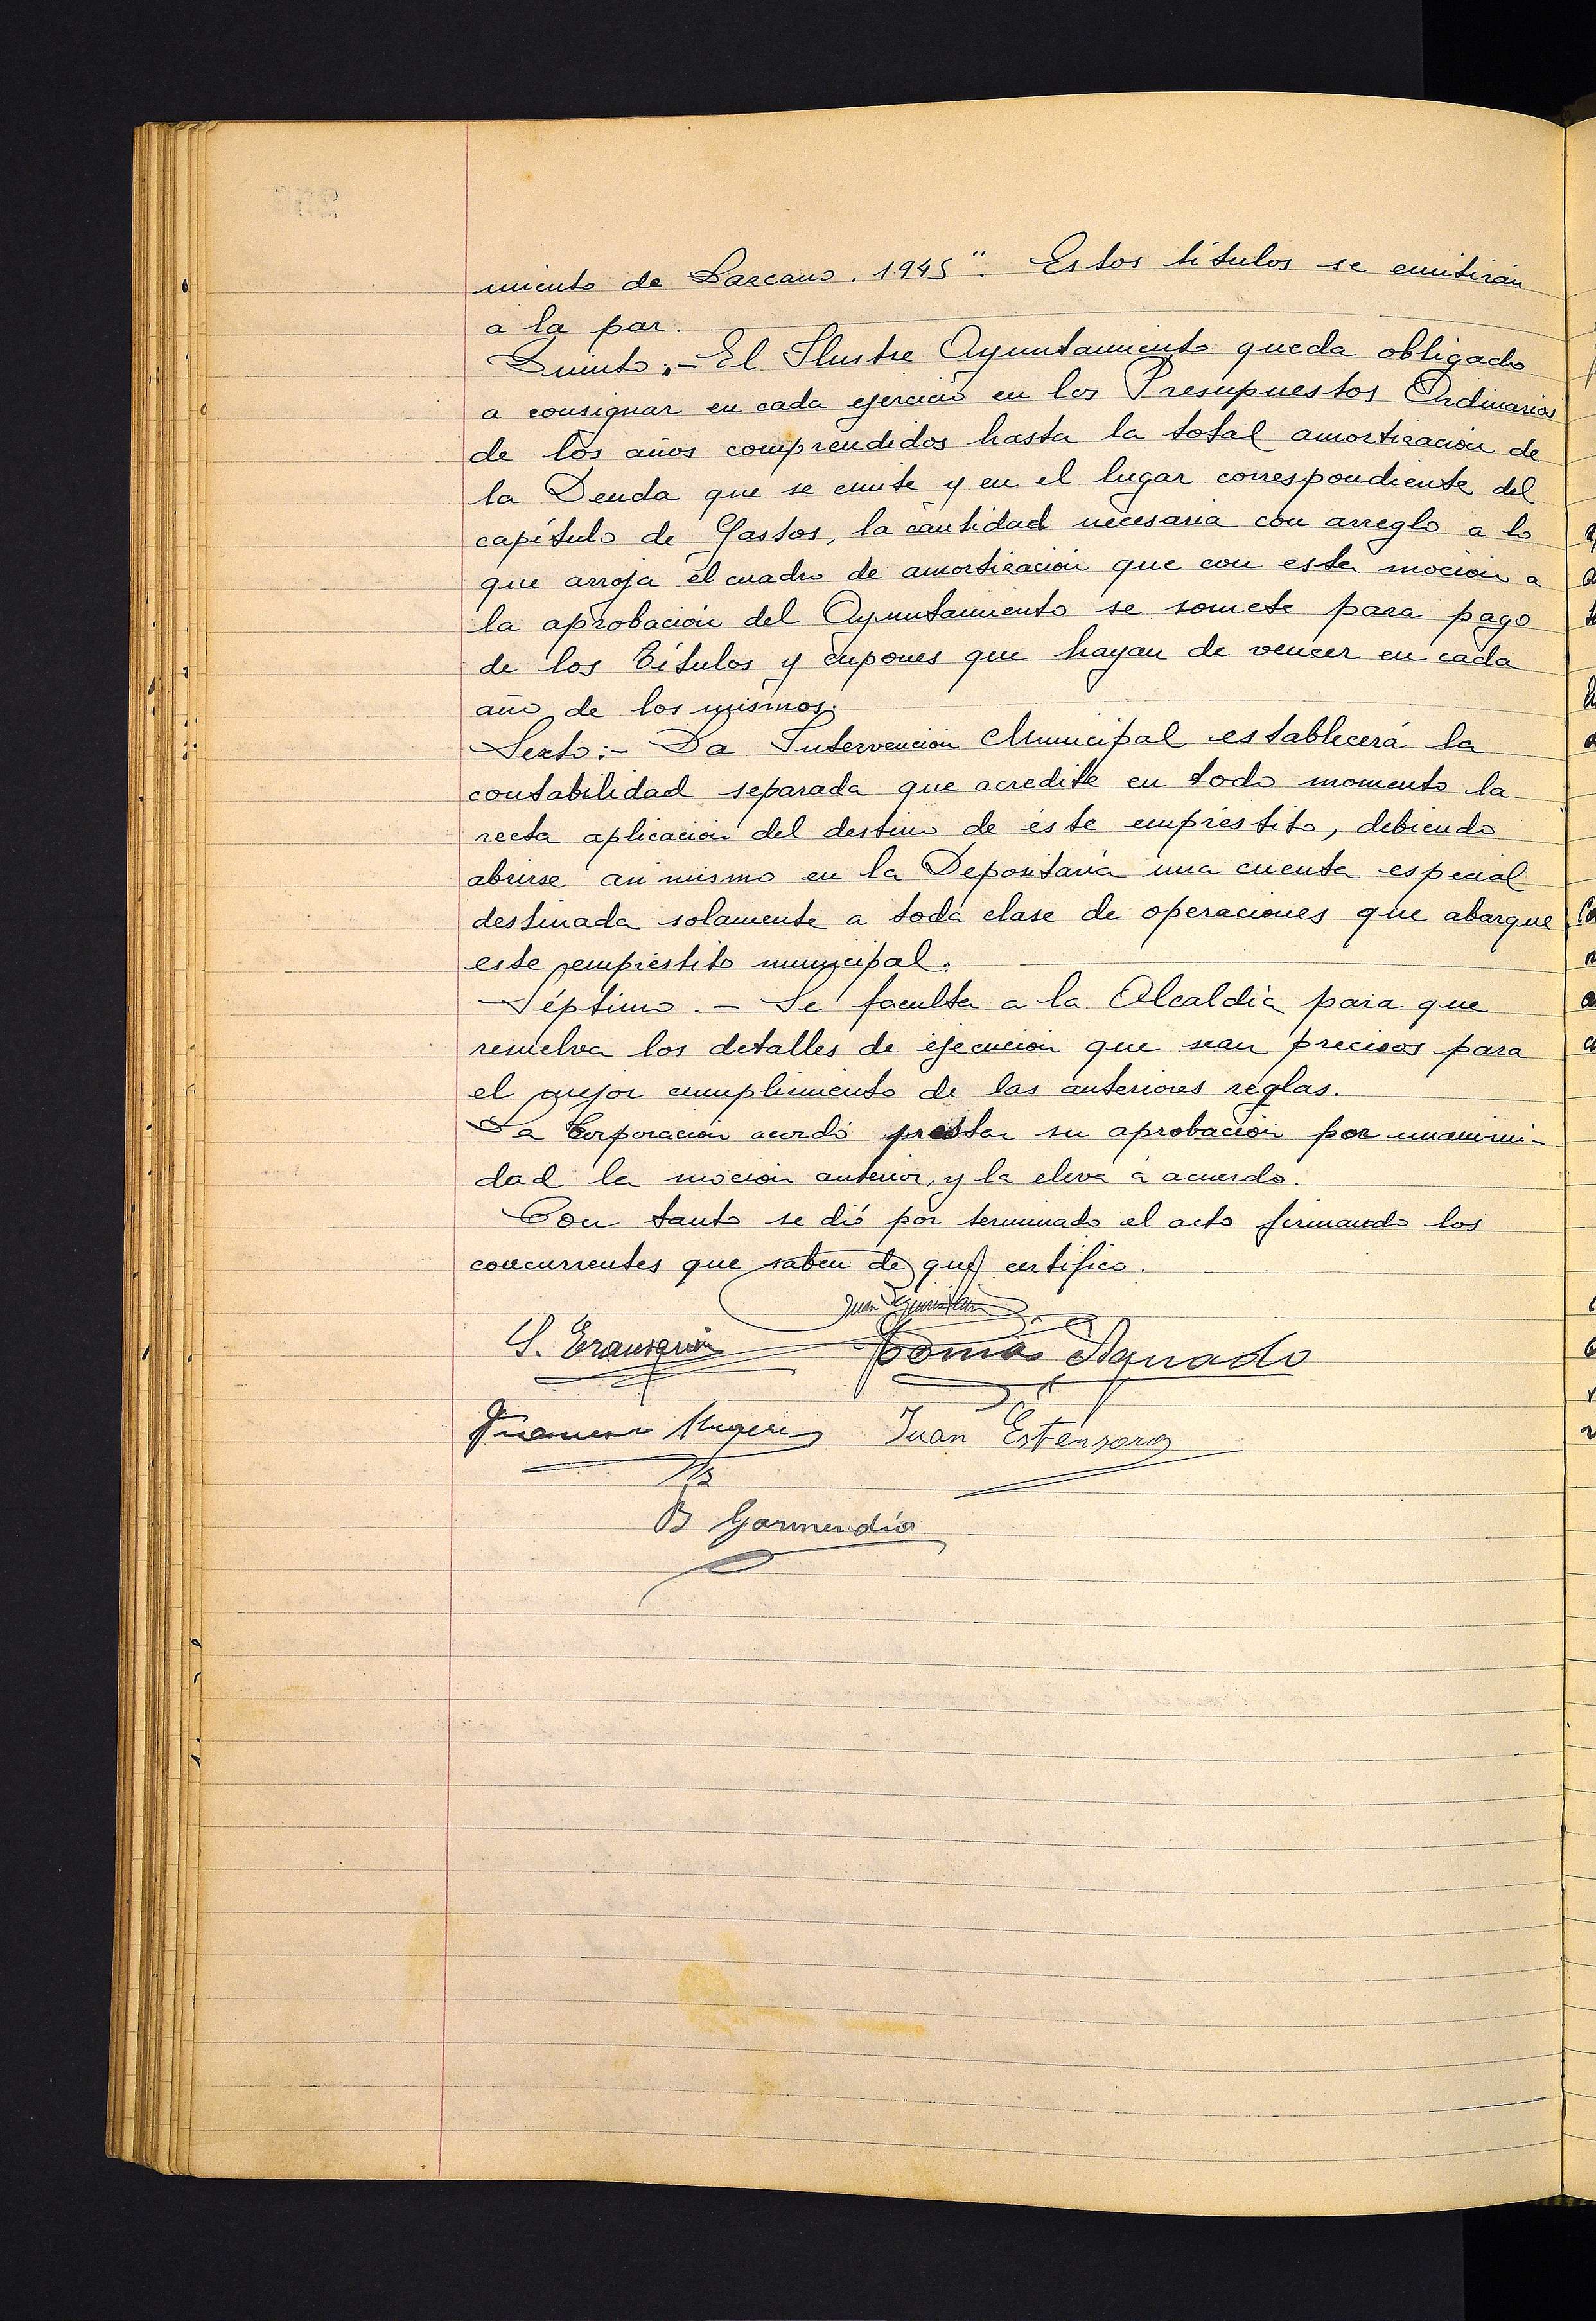 miento de Lazcano. 1945". Estos títulos se emitirán
a la par.
Quinto:- El Ilustre Ayuntamiento queda obligado
a consignar en cada ejercicio en los Presupuestos Ordinarios
de los años comprendidos hasta la total amortización de
la Deuda que se emite y en el lugar correspondiente del
capítulo de Gastos, la cantidad necesaria con arreglo a lo
que arroja el cuadro de amortización que con esta moción a
la aprobación del Ayuntamiento se somete para pago
de los títulos y cupones que hayan de vencer en cada
año de los mismos.
Sexto:- La Intervención Municipal establecerá la
contabilidad separada que acredite en todo momento la
recta aplicación del destino de éste empréstito, debiendo
abrirse asi mismo en la Depositaría una cuenta especial
destinada solamente a toda clase de operaciones que abarque
este empréstito municipal.
Séptimo.- Se faculta a la Alcaldía para que
resuelva los detalles de ejecución que sean precisos para
el mejor cumplimiento de las anteriores reglas.
La Corporación acordó prestar su aprobación por unanimi-
dad la moción anterior, y la eleva á acuerdo.
Con tanto se dió por terminado el acto firmando los
concurrentes que saben de que certifico.
Juan
S. Erausquin Tomás Aguado
Francisco Juan Estensoro
B Garmendia